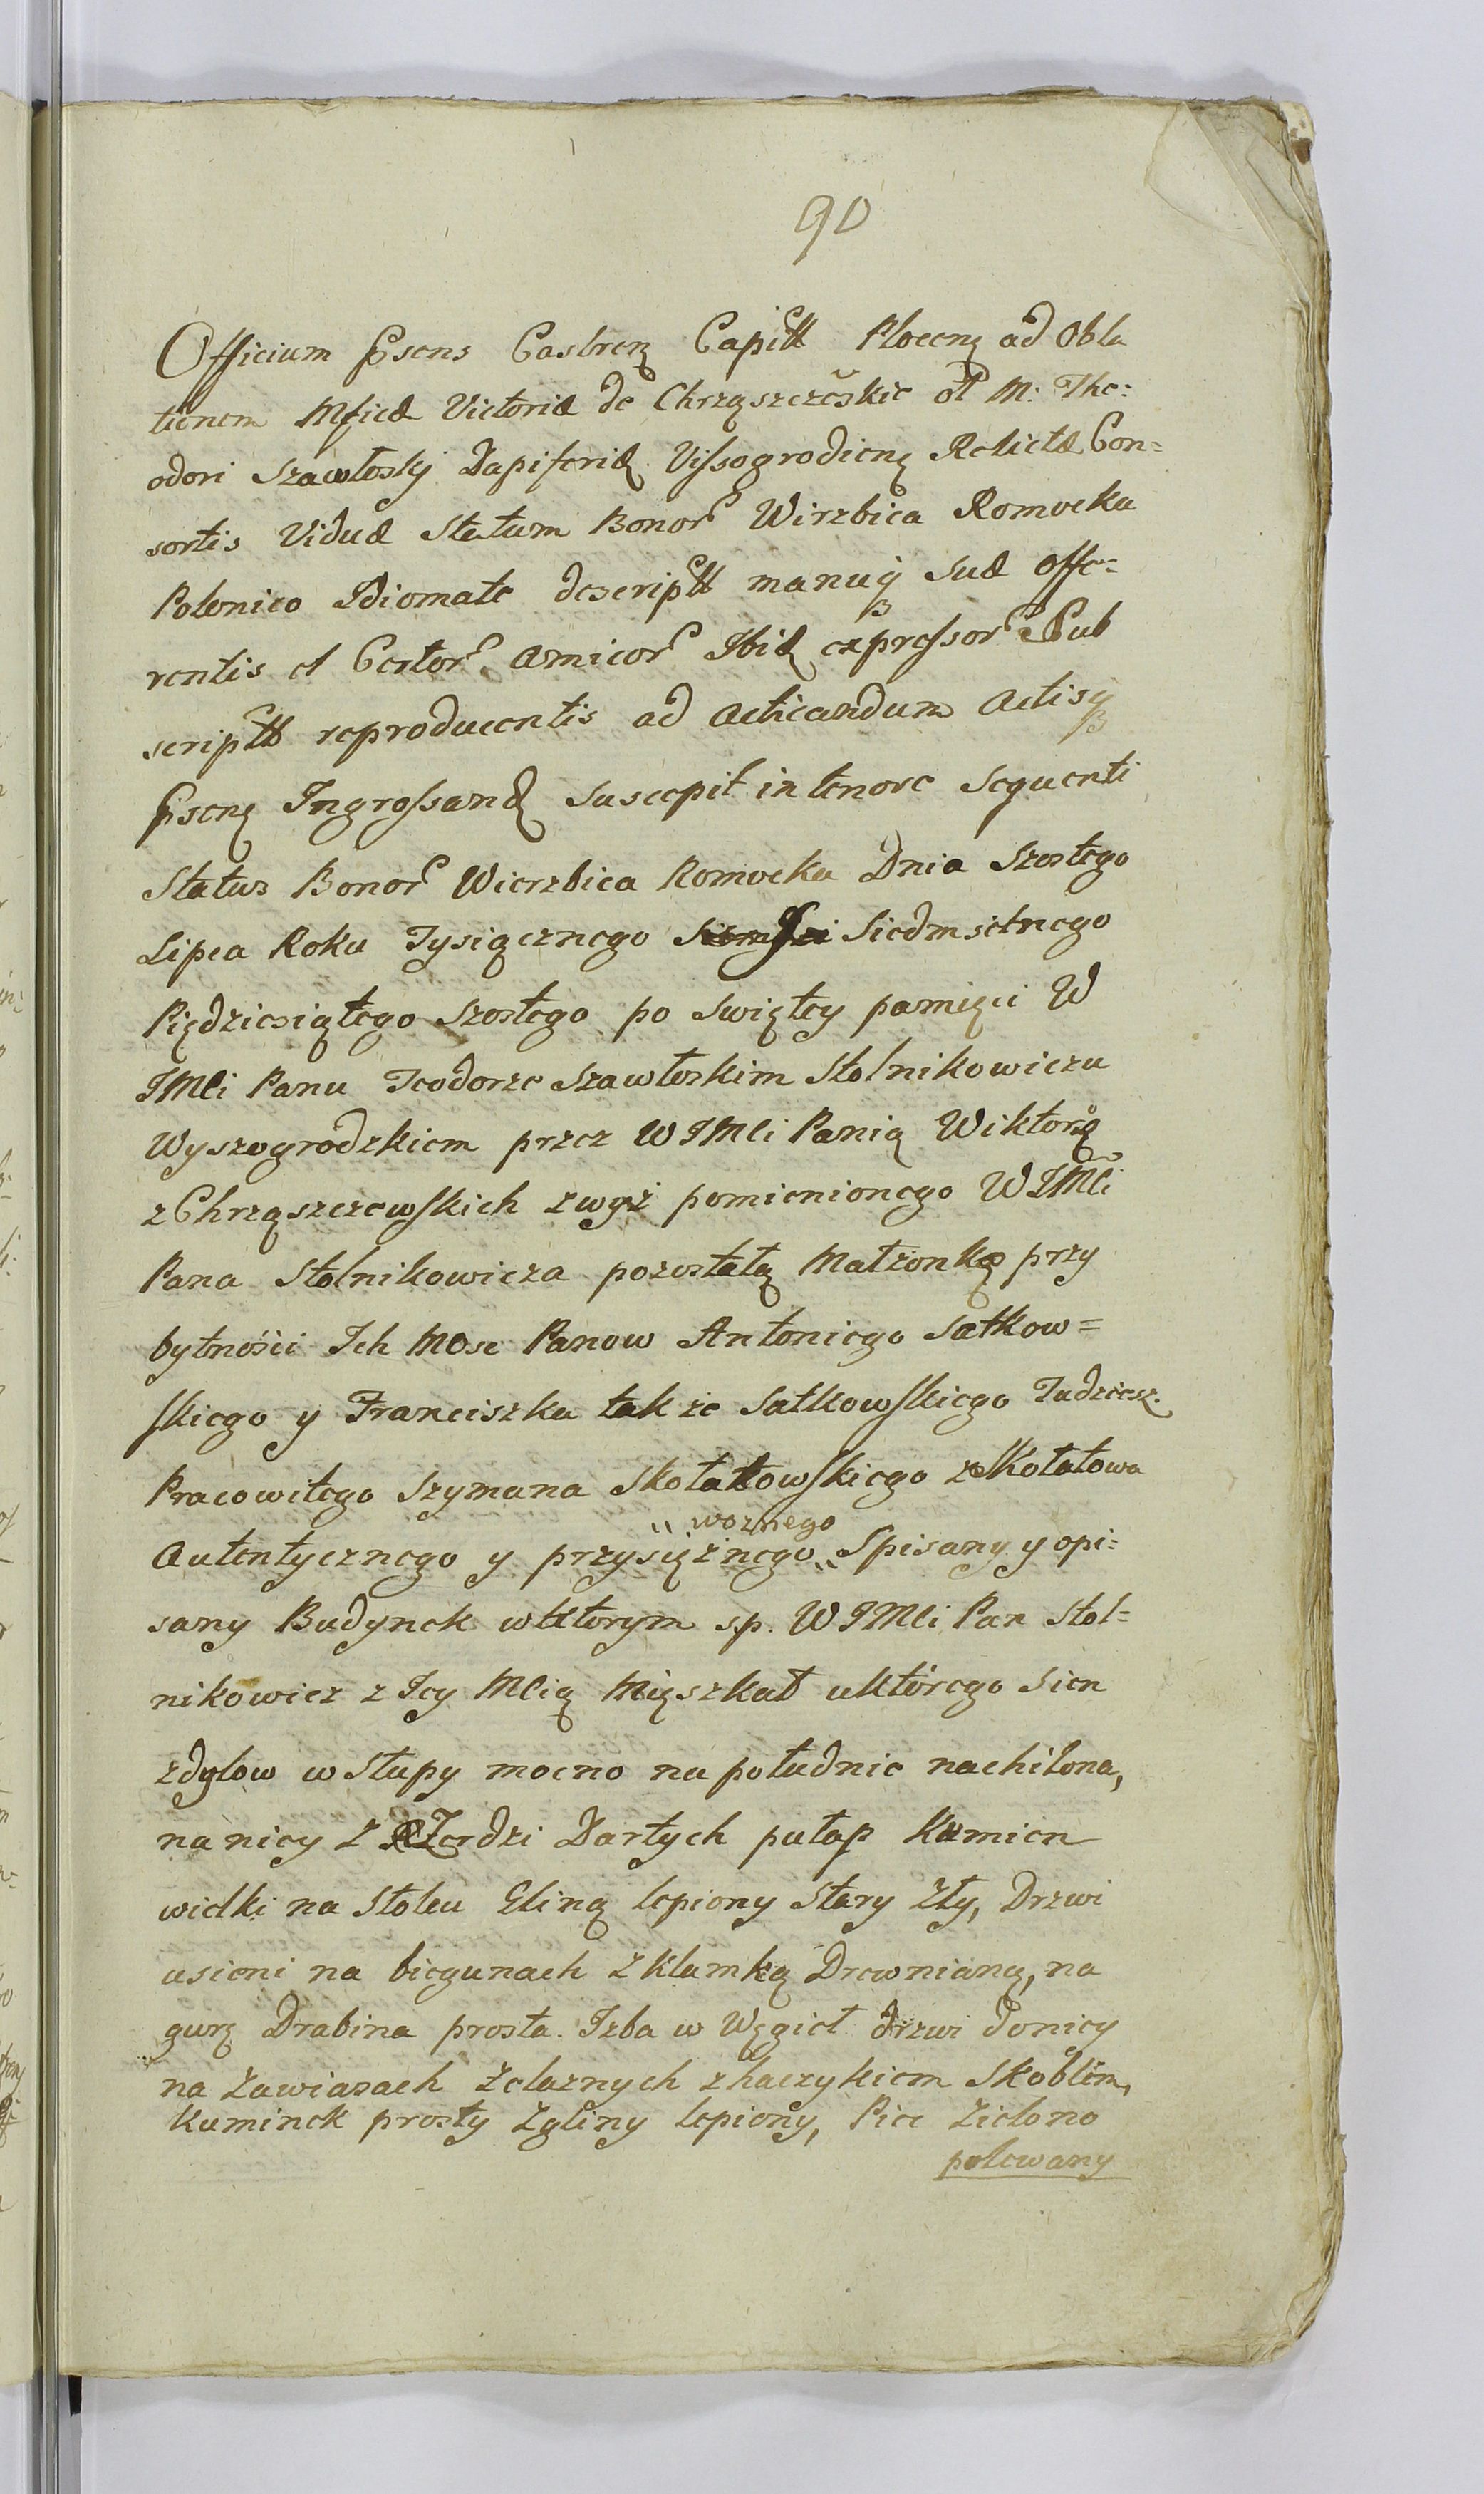 90
Officium Psens Castren Capitt Plocen ad Obla
tionem Mficæ Victoriæ de Chrząszczewskie ol M: The:
odori Szawłoskj Dapiferid Vissogrodien Relictæ Con=
sortis Viduæ Statum Bonor Wirzbica Romocka
Polonico Idiomate descriptt manuq suæ Offe=
rentis et Certor Amicor Ibid expressor Sub
scriptt reproducentis ad Acticandum Actisq
Psen Ingrossand suscepit in tenore sequenti
Status Bonor Wierzbica Romocka Dnia Szostego
Lipca Roku Tysiącznego Siedmsetnego
Piędziesiątego Szostego po swiętey pamięci W
JMCi Panu Teodorze Szawłoskim Stolnikowiczu
Wyszogrodzkiem przez WJMCi Panią Wiktorą
z Chrząszczewskich zwyż pomienionego WJMCi
Pana Stolnikowicza pozostałą Małżonkę przy
bytności Ich Mosc Panow Antoniego Sałkow=
skiego y Franciszka także Sałkowskiego Tudziesz.
Pracowitego Szymana Skołatowskiego z Skołatowa
" woznego
Autentycznego y przysiężnego " Spisany y opi=
sany Budynek wktorym s.p. WJMCi Pan Stol=
nikowicz z Jey MCią Mięszkał uktórego Sien
zdylow w Słupy mocno na południe nachilona,
na niey z Żerdzi Dartych pułap Kamien
wielki na Stolcu Gliną lepiony Stary Zły, Drzwi
usieni na biegunach z Klamką Drewnianą, na
gurę Drabina prosta. Izba w Węgieł drzwi doniey
na Zawiasach Zelaznych z haczykiem Skoblem,
Kuminek prosty Zgliny lepiony, Piec Zielono
polewany